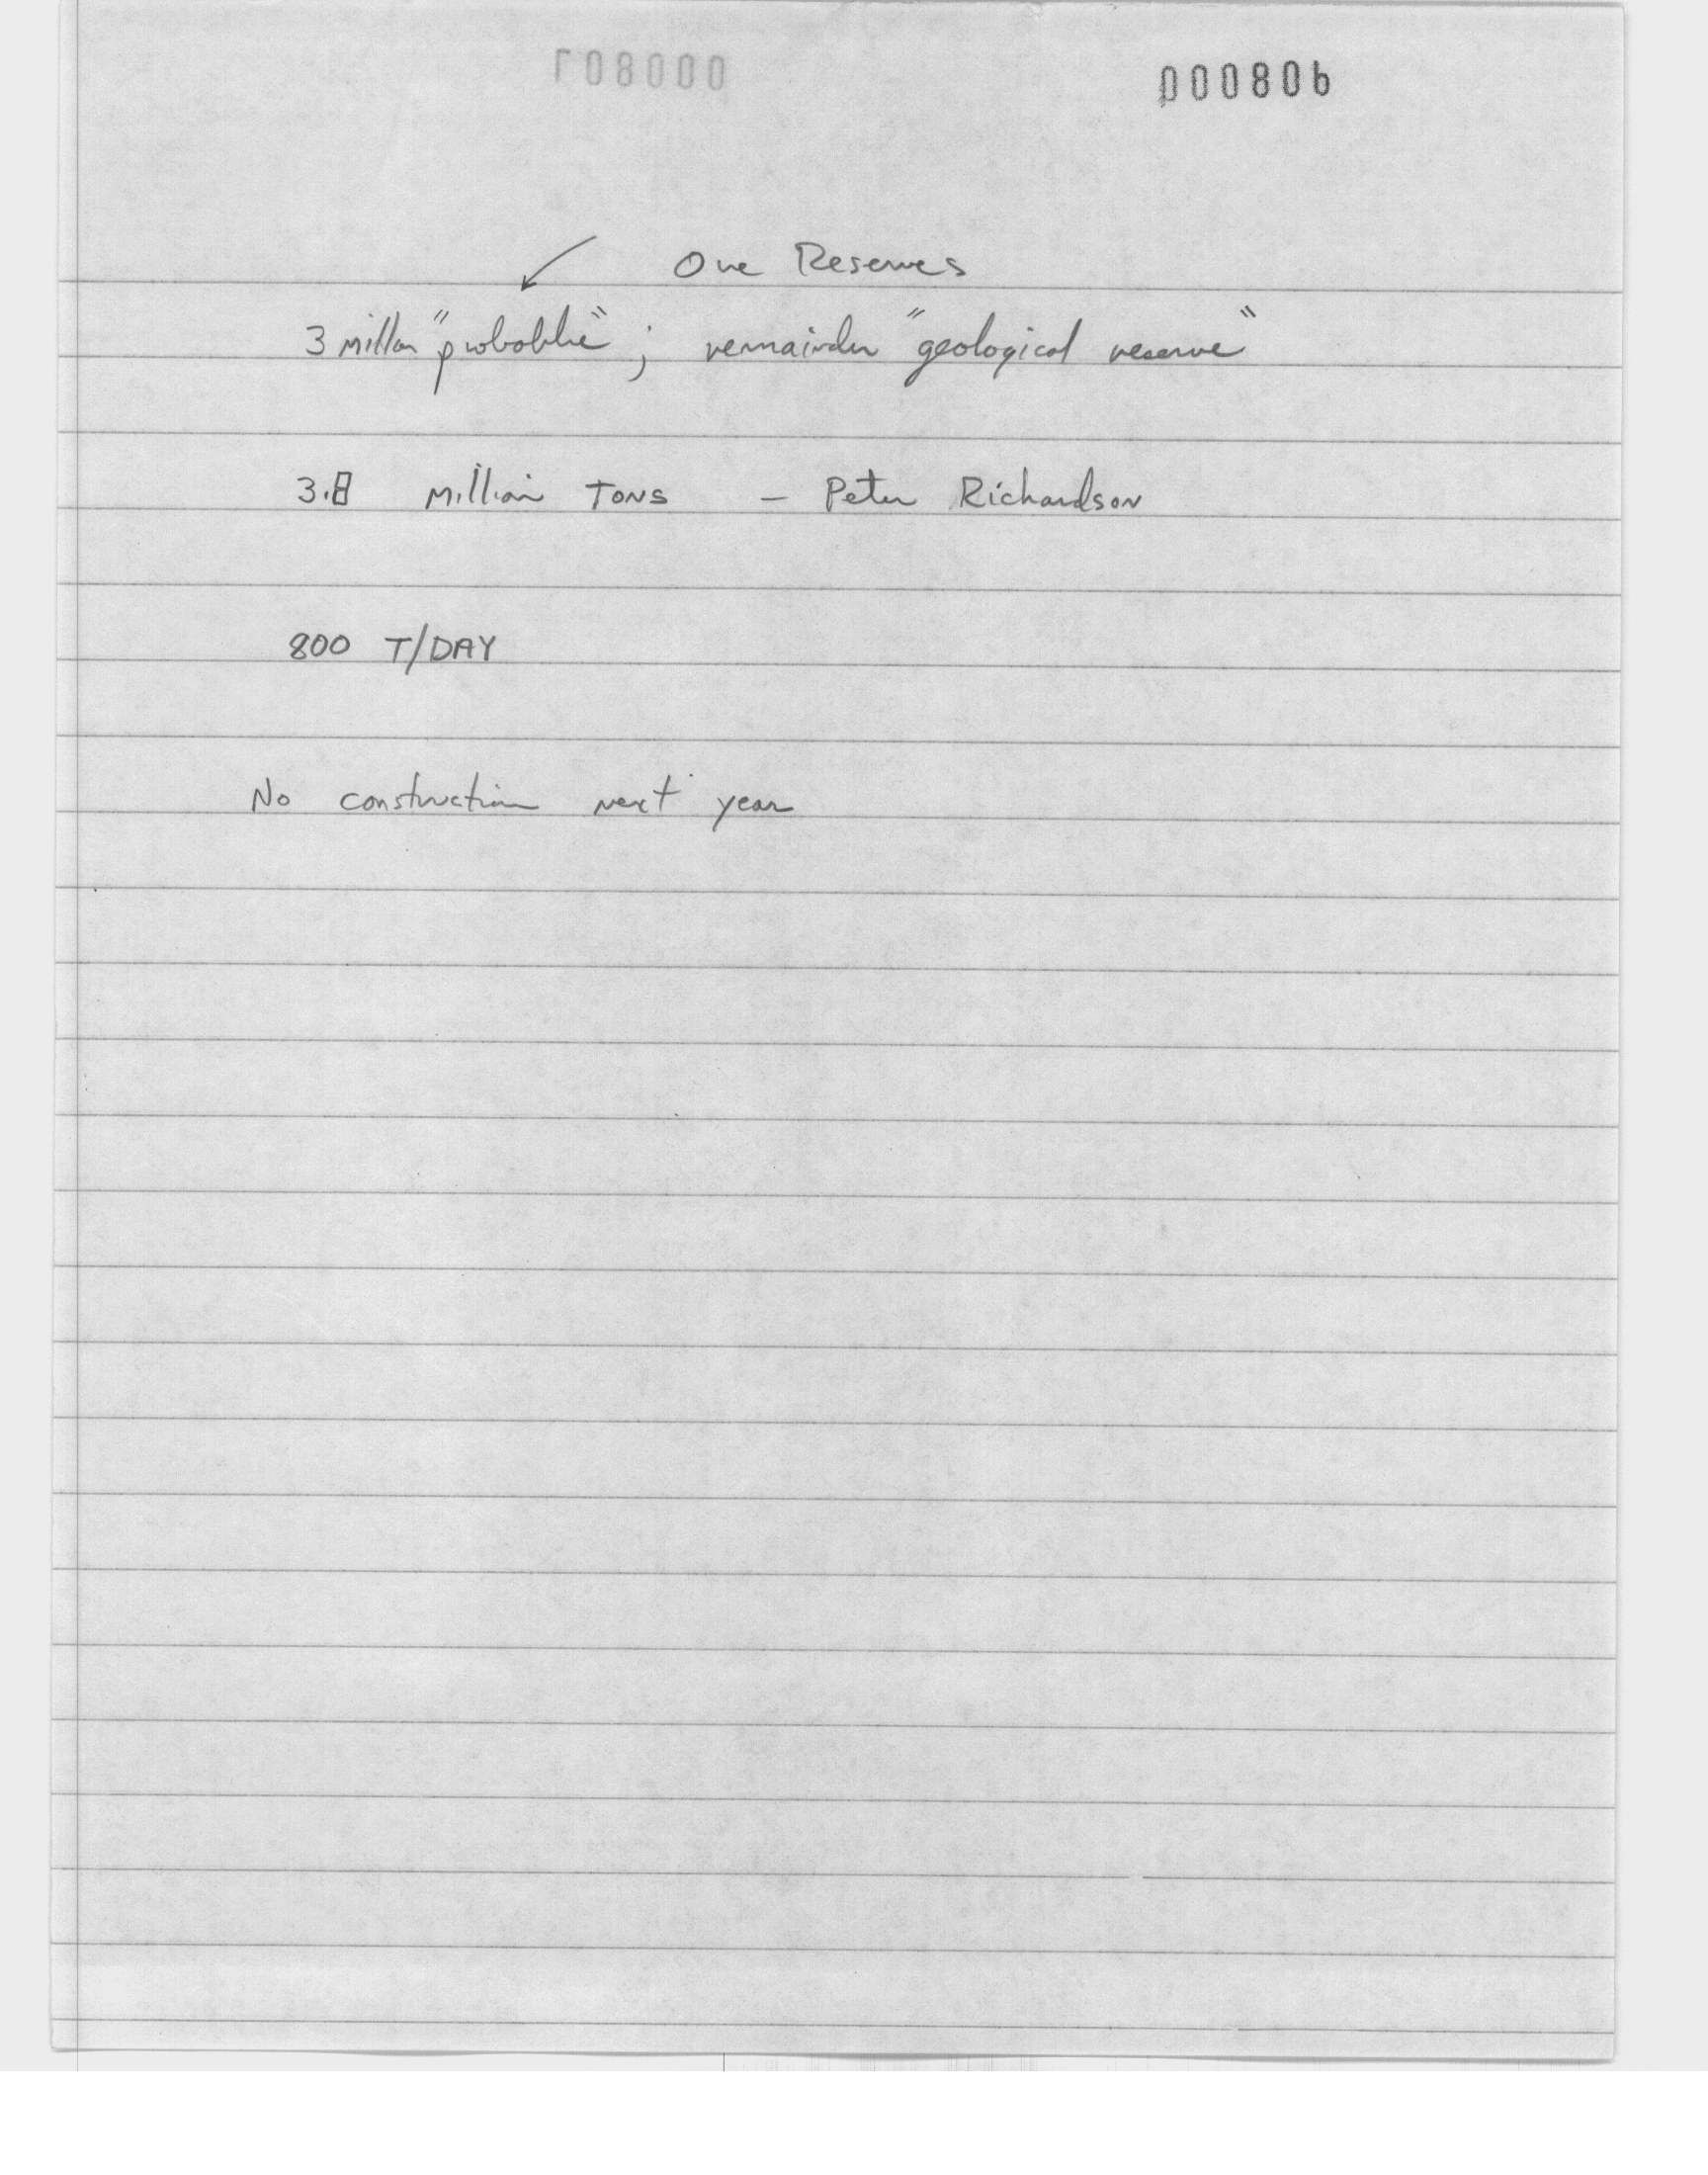 000806
Ore Reserves
3 million "probable" ; remainder "geological reserve"
3.8 million Tons - Peter Richardson
800 T/DAY
No construction next year